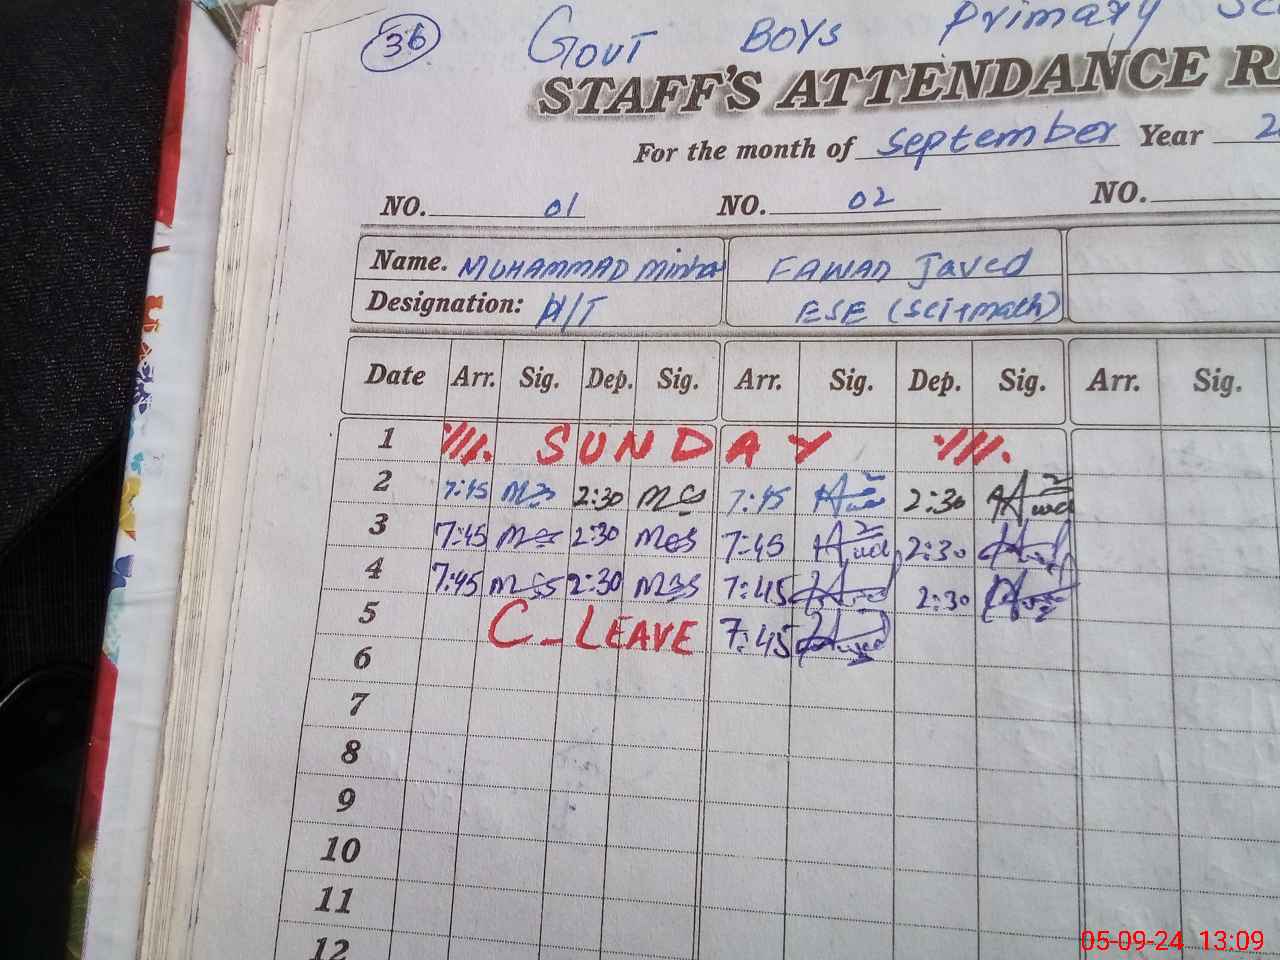 36 Govt Boys Primary
STAFF'S ATTENDANCE
For the month of September Year
NO. 01 NO. 02 NO.
Name. MUHAMMAD FAWAD Javed
Designation: H/T ESE (Sci+math)
Date Arr. Sig. Dep. Sig. Arr. Sig. Dep. Sig. Arr. Sig.
1 SUNDAY
2 7:45 2:30 7:45 2:30
3 7:45 2:30 7:45 2:30
4 7:45 2:30 7:45 2:30
5 C-LEAVE 7:45
6
7
8
9
10
11
12
05-09-24 13:09